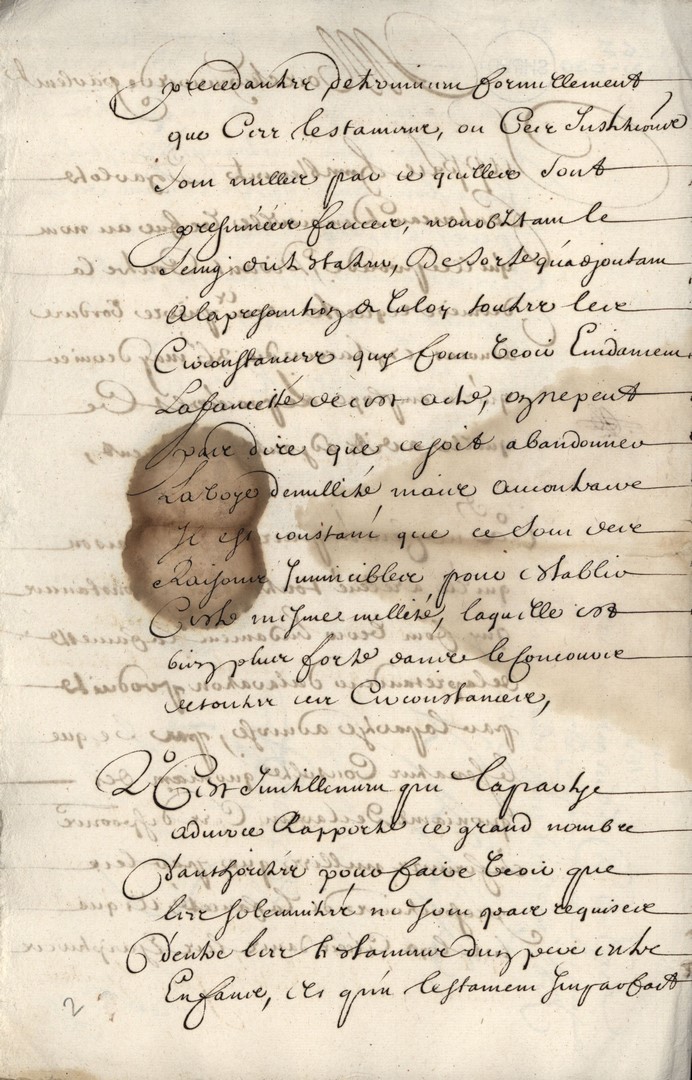 precedantes determinent formellement
que Ces testamens, ou Ces Institutions
sont nulles par ce qu'elles sont
presumées fausses, nonobstant le
seing du testateur, De sorte qu'adjoutant
A la presomption de la loy toutes les
Circonstances quy font voir Evidament
La fausseté de cest acte, on ne peut
pas dire que ce soit abandonner
La voye de nullité mais au contraire
Il est constant que ce sont des
Raisons Invincibles pour establir
Ceste mesme nullité, laquelle est
bien plus forte dans le Concours
de toutes ces Circonstances,
2º C'est Inutillement que la partie
adverse Rapporte ce grand nombre
d'authorités pour faire voir que
les solemnités ne sont pas requises
dans les testamens d'un pere entre
Enfans, et qu'un testament Imparfait
2